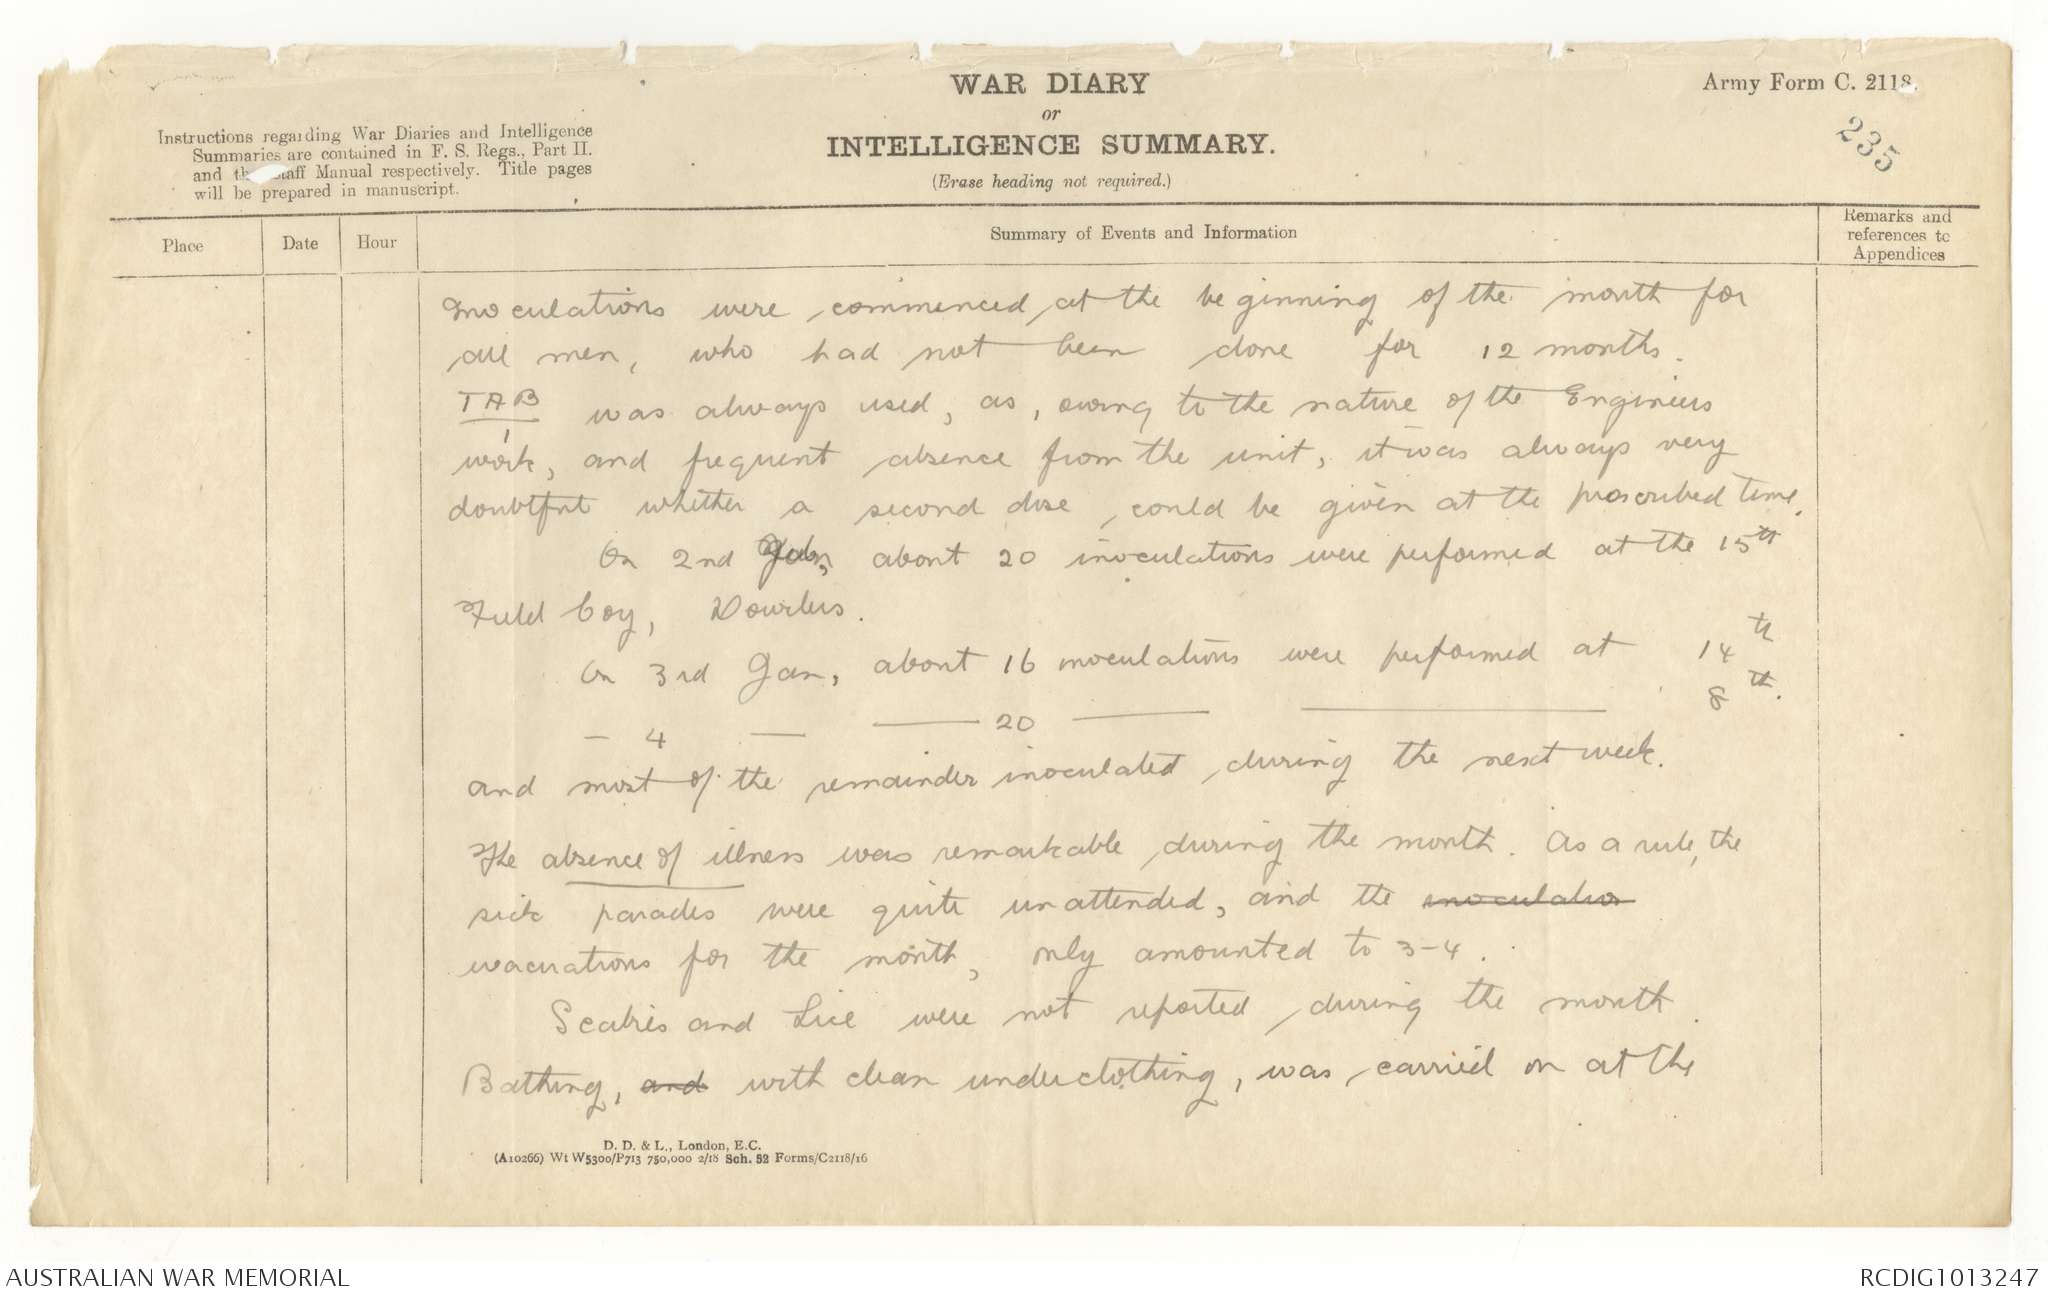 WAR DIARY
or
INTELLIGENCE SUMMARY.
(Erase heading not required.)
Army Form C. 2118.
235
Instructions regarding War Diaries and Intelligence
Summaries are contained in F. S. Regs., Part II.
and the Staff Manual respectively. Title pages
will be prepared in manuscript.
Place
Date
Hour
Summary of Events and Information
Remarks and
references to
Appendices
Inoculations were commenced, at the beginning of the month for
all men, who had not been done for 12 months.
TAB was always used, as, owing to the nature of the Engineers
work, and frequent absence from the unit, it was always very
doubtful whether a second dose, could be given at the prescribed time.
On 2nd Jan, about 20 inoculations were performed at the 15th
Field Coy, Dourlers.
On 3rd Jan, about 16 inoculations were performed at 14th
— 4 — — 20 — — 8th.
and most of the remainder inoculated, during the next week.
The absence of illness was remarkable, during the month. As a rule, the
sick parades were quite unattended, and the inoculation
evacuations for the month, only amounted to 3-4.
Scabies and Lice were not reported, during the month.
Bathing, and with clean underclothing, was carried on at the
D. D. & L., London, E.C.
(A10266) Wt W5300/P713 750,000 2/18 Sch. 52 Forms/C2118/16
AUSTRALIAN WAR MEMORIAL
RCDIG1013247